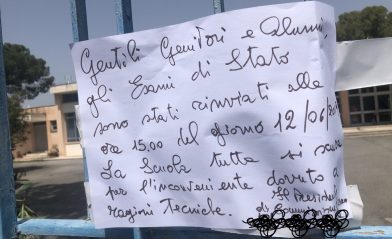 Gentili Genitori e Alunni,
gli Esami di Stato
sono stati rinviati alle
ore 15,00 del giorno 12/06/20
La Scuola tutta si scusa
per l'inconveniente dovuto a
ragioni Tecniche. Il Presidente
di Commissione